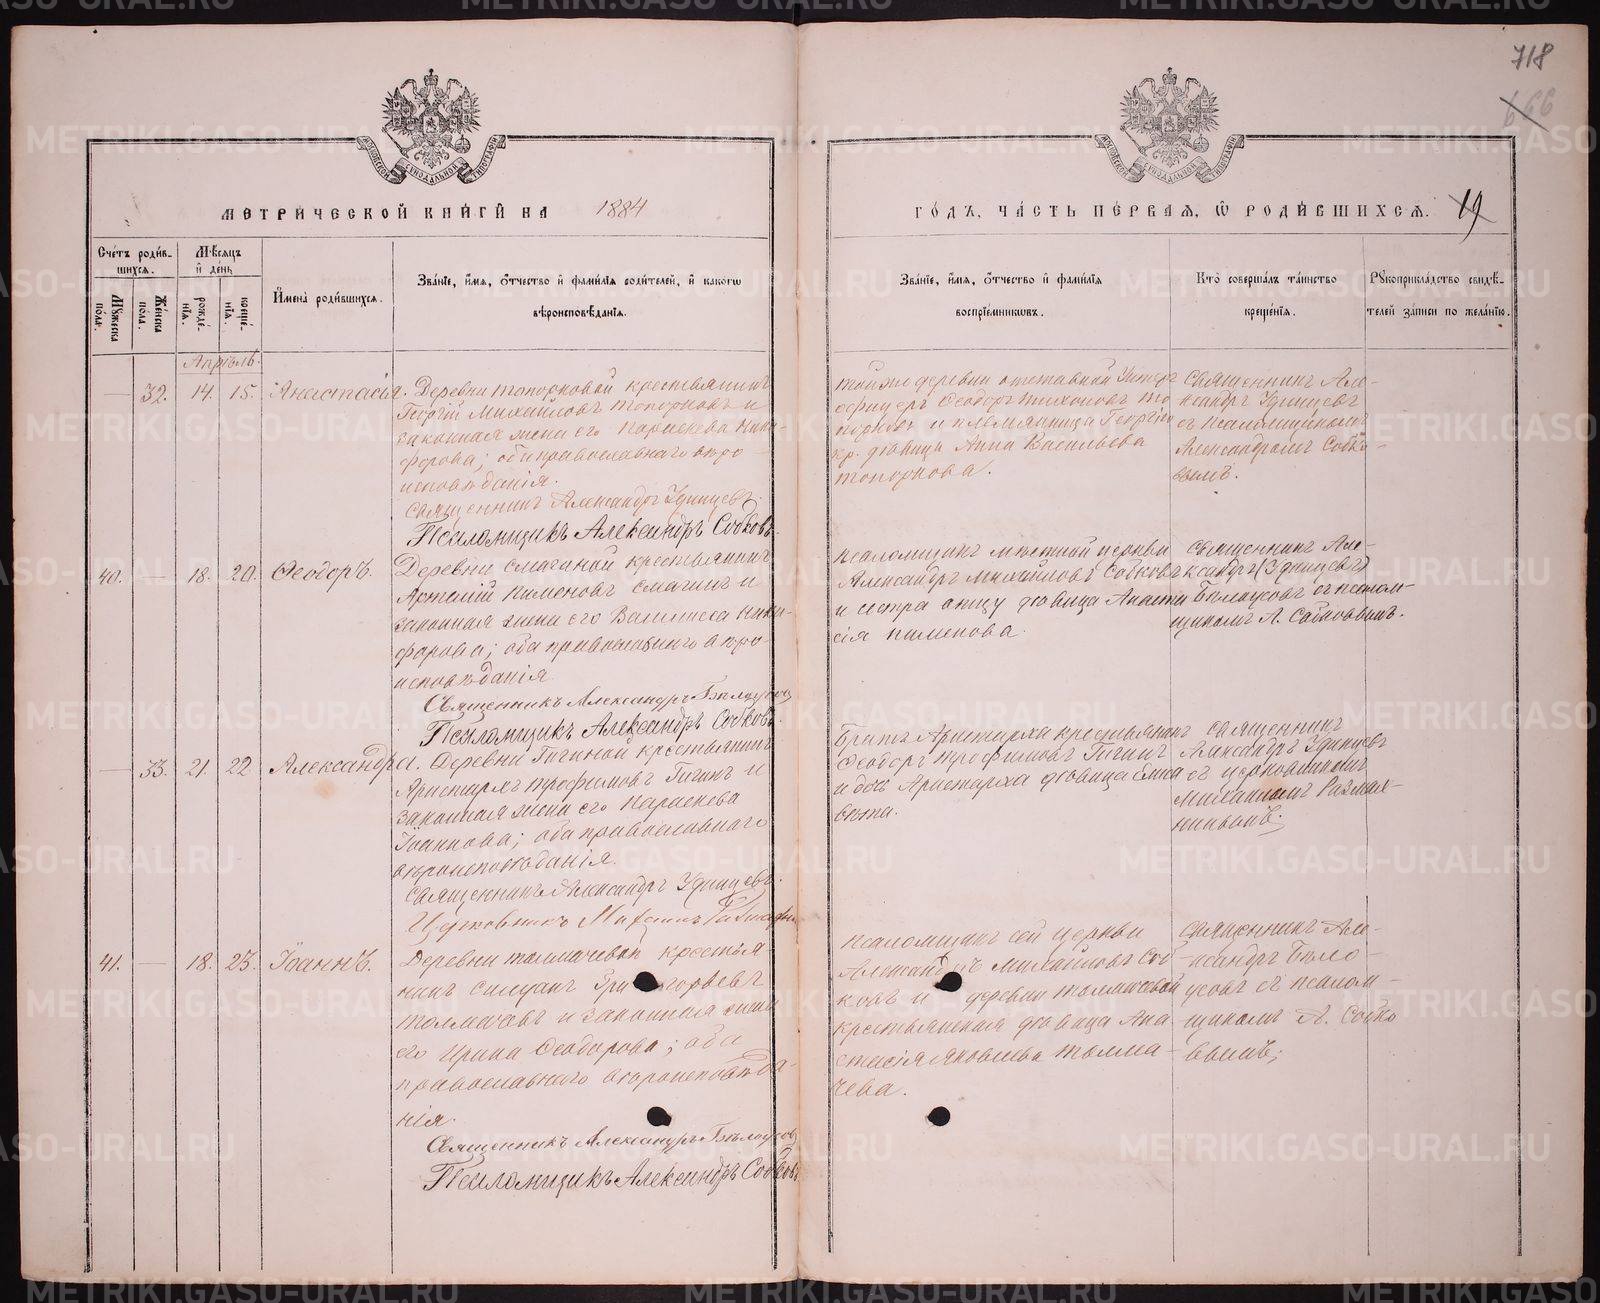 718
666
МОСКОВСКОЙ СѴНОДАЛЬНОЙ ТИПОГРАФІИ
МОСКОВСКОЙ СѴНОДАЛЬНОЙ ТИПОГРАФІИ
МЕТРИЧЕСКОЙ КНИГИ НА 1884
ГОДЪ, ЧАСТЬ ПЕРВАЯ, Ѡ РОДИВШИХСЯ. 19
Счетъ родив-
шихся.
Мꙋжеска пола.
Женска пола.
Мѣсяцъ
и день
рожде-
нія.
креще-
нія.
Имена родившихся.
Званіе, имя, отчество и фамилія родителей, и какогѡ
вѣроисповѣданія.
Званіе, имя, отчество и фамилія
воспріемникѡвъ.
Кто совершалъ таинство
крещенія.
Рꙋкоприкладство свидѣ-
телей записи по желанію.
Апрѣль.
— 32. 14. 15. Анастасія. Деревни Топорковой крестьянинъ
Георгій Михайловъ Топорковъ и
законная жена его Параскева Ники-
форова; оба православнаго вѣро-
исповѣданія.
Священникъ Александръ Удинцевъ.
Псаломщикъ Александръ Собковъ.
тойже деревни отставной Унтеръ
офицеръ Ѳеодоръ Тихоновъ То
порковъ и племянница Георгія
кр. дѣвица Анна Васильева
Топоркова.
Священникъ Але-
ксандръ Удинцевъ
съ псаломщикомъ
Александромъ Собко-
вымъ.
40. — 18. 20. Ѳеодоръ. Деревни Смагиной крестьянинъ
Артемій Пименовъ Смагинъ и
законная жена его Василисса Ники-
форова; оба православнаго вѣро-
исповѣданія
Священникъ Александръ Бѣлоусовъ
Псаломщикъ Александръ Собковъ
псаломщикъ мѣстной церкви
Александръ Михайловъ Собковъ
и сестра отцу дѣвица Анаста
сія Пименова.
Священникъ Але-
ксандръ (Удинцевъ)
Бѣлоусовъ съ псалом-
щикомъ А. Собковымъ.
— 33. 21. 22 Александра. Деревни Гигиной крестьянинъ
Аристархъ Трофимовъ Гигинъ и
законная жена его Параскева
Іоаннова; оба православнаго
вѣроисповѣданія.
Священникъ Александръ Удинцевъ.
Церковникъ Михаилъ
Братъ Аристарха крестьянин
Ѳеодоръ Трофимовъ Гигинъ
и дочь Аристарха дѣвица Елиса
вета.
Священникъ
Александръ Удинцевъ
съ церковникомъ
Михаиломъ
41. — 18. 23. Іоаннъ. Деревни Толмачевой крестья-
нинъ Силуанъ Григорьевъ
Толмачевъ и законная жена
его Ирина Ѳеодорова; оба
православнаго вѣроисповѣда-
нія.
Священникъ Александръ Бѣлоусовъ
Псаломщикъ Александръ Собковъ
псаломщикъ сей церкви
Александръ Михайловъ Соб
ковъ и деревни Толмачевой
крестьянская дѣвица Ана
стасія Яковлева Толма-
чева.
Священникъ Але-
ксандръ Бѣло-
усовъ съ псалом-
щикомъ А. Собко
вымъ;
METRIKI.GASO-URAL.RU